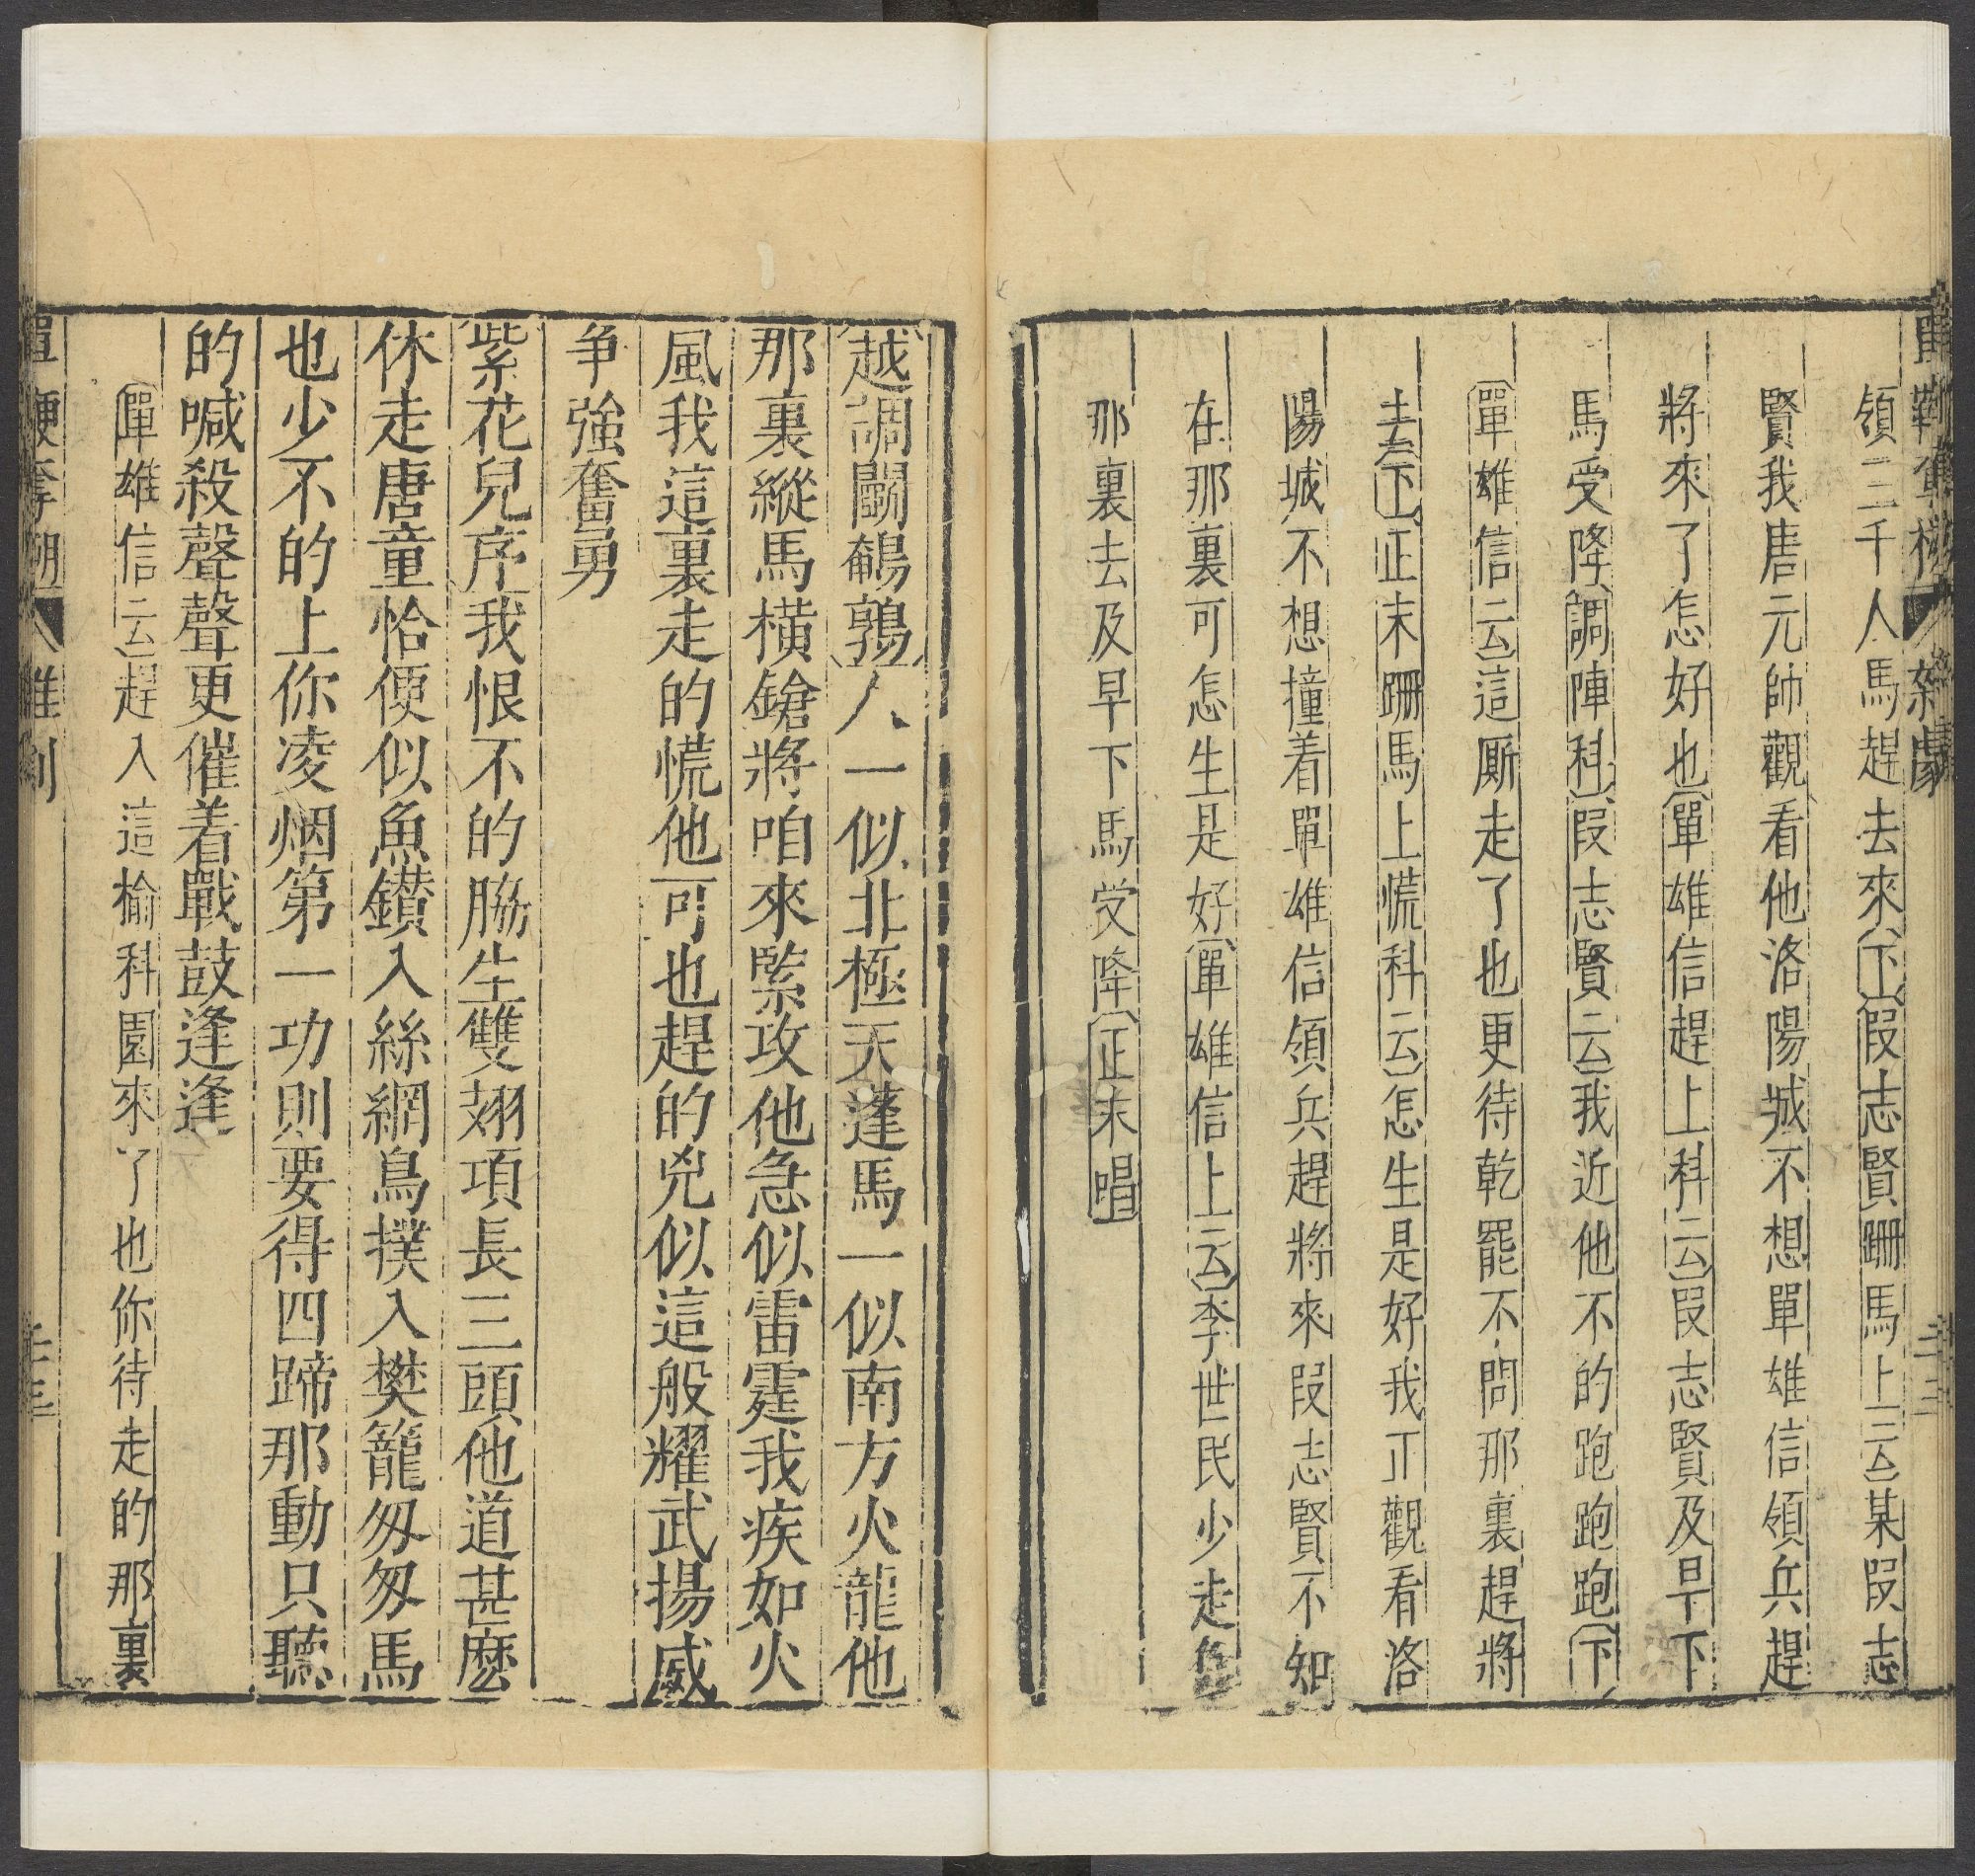 領三千人馬趕去來下叚志賢跚馬上云某叚志
賢我唐元帥觀看他洛陽城不想單雄信領兵趕
將來了怎好也單雄信趕上科云叚志賢及早下
馬受降調陣科叚志賢云我近他不的跑跑跑下
單雄信云這厮走了也更待乾罷不問那裏趕將
去下正末跚馬上慌科云怎生是好我正觀看洛
陽城不想撞着單雄信領兵趕將來叚志賢不知
在那裏可怎生是好單雄信上云李世民少走
那裏去及早下馬受降正末唱
越調鬭鵪鶉人一似北極天蓬馬一似南方火龍他
那裏縱馬橫鎗將咱來緊攻他急似雷霆我疾如火
風我這裏走的慌他可也趕的兇似這般耀武揚威
争強奮勇
紫花兒序我恨不的脇生雙翅項長三頭他道甚麽
休走唐童恰便似魚鑚入絲網鳥撲入樊籠匆匆馬
也少不的上你凌烟第一功則要得四蹄那動只聽
的喊殺聲聲更催着戰鼓逢逢
單雄信云趕入這榆科園來了也你待走的那裏